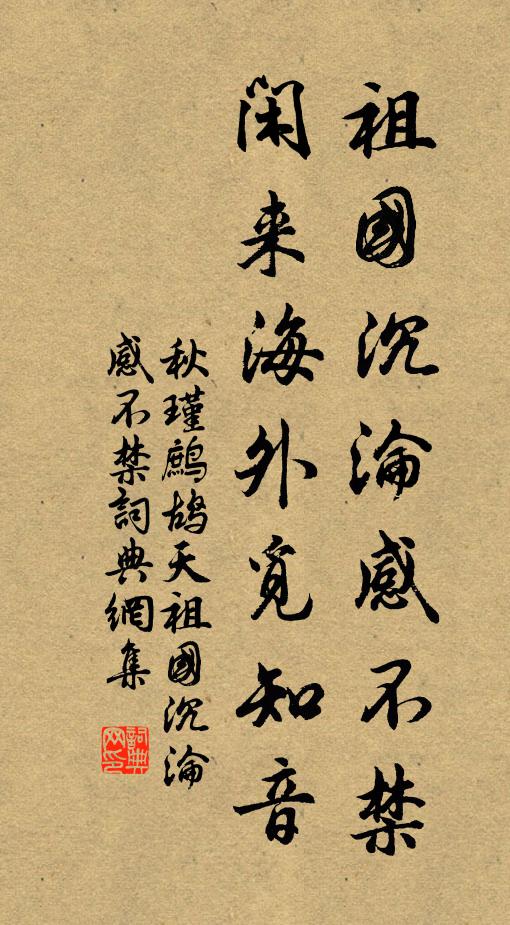 祖國沉淪感不禁
閑来海外覓知音
秋瑾鷓鴣天祖國沉淪
感不禁詞典網集
詞典
网印